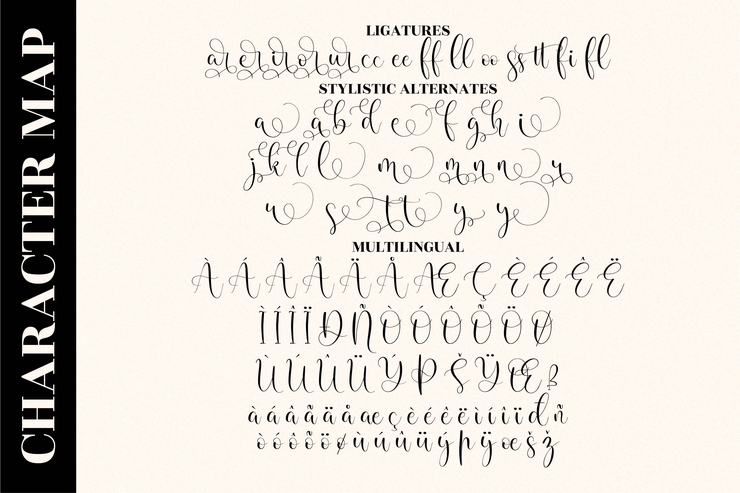 CHARACTER MAP
LIGATURES
ar er ir or ur cc ee ff ll oo ss tt fi fl
STYLISTIC ALTERNATES
a a b d e f g h i
j k l l m m n n r
u s t t y y
MULTILINGUAL
À Á Â Ã Ä Å Æ Ç È É Ê Ë
Ì Í Î Ï Ð Ñ Ò Ó Ô Õ Ö Ø
Ù Ú Û Ü Ý Þ Š Ÿ Œ ß
à á â ã ä å æ ç è é ê ë ì í î ï đ ñ
ò ó ô õ ö ø ù ú û ü ý þ ÿ œ š ž